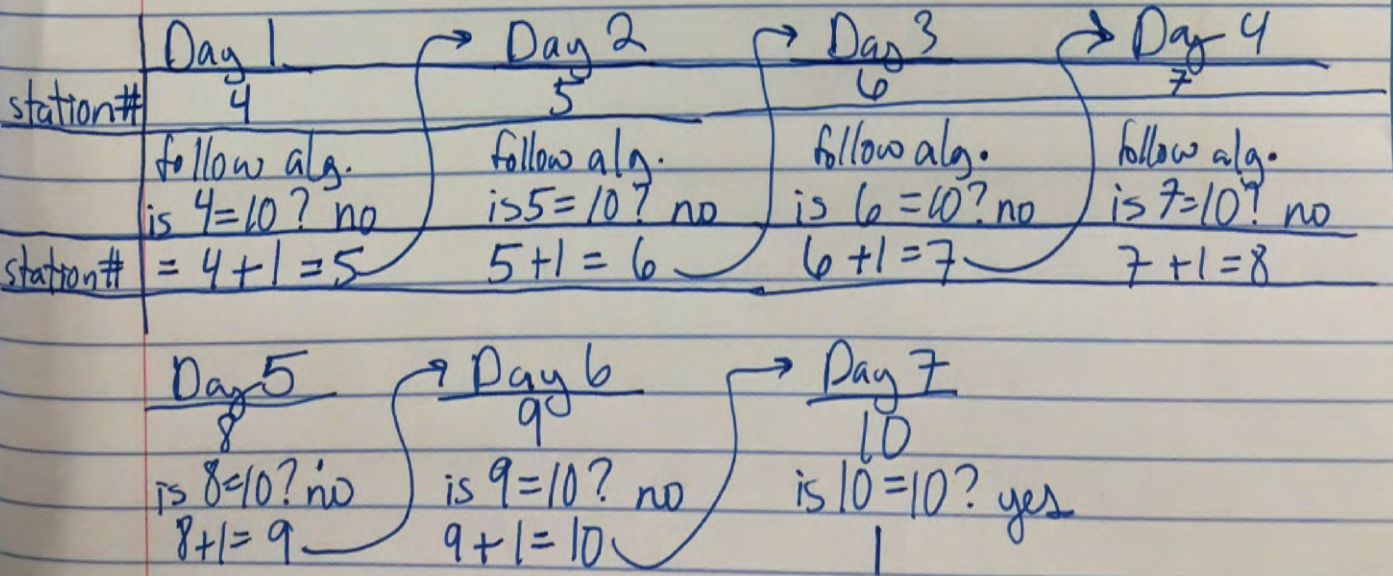 Day 1 → Day 2 → Day 3 → Day 4
station# 4 5 6 7
follow alg. follow alg. follow alg. follow alg.
is 4=10? no is 5=10? no is 6=10? no is 7=10? no
station# = 4+1=5 5+1=6 6+1=7 7+1=8
Day 5 → Day 6 → Day 7
8 9 10
is 8=10? no is 9=10? no is 10=10? yes
8+1=9 9+1=10 1